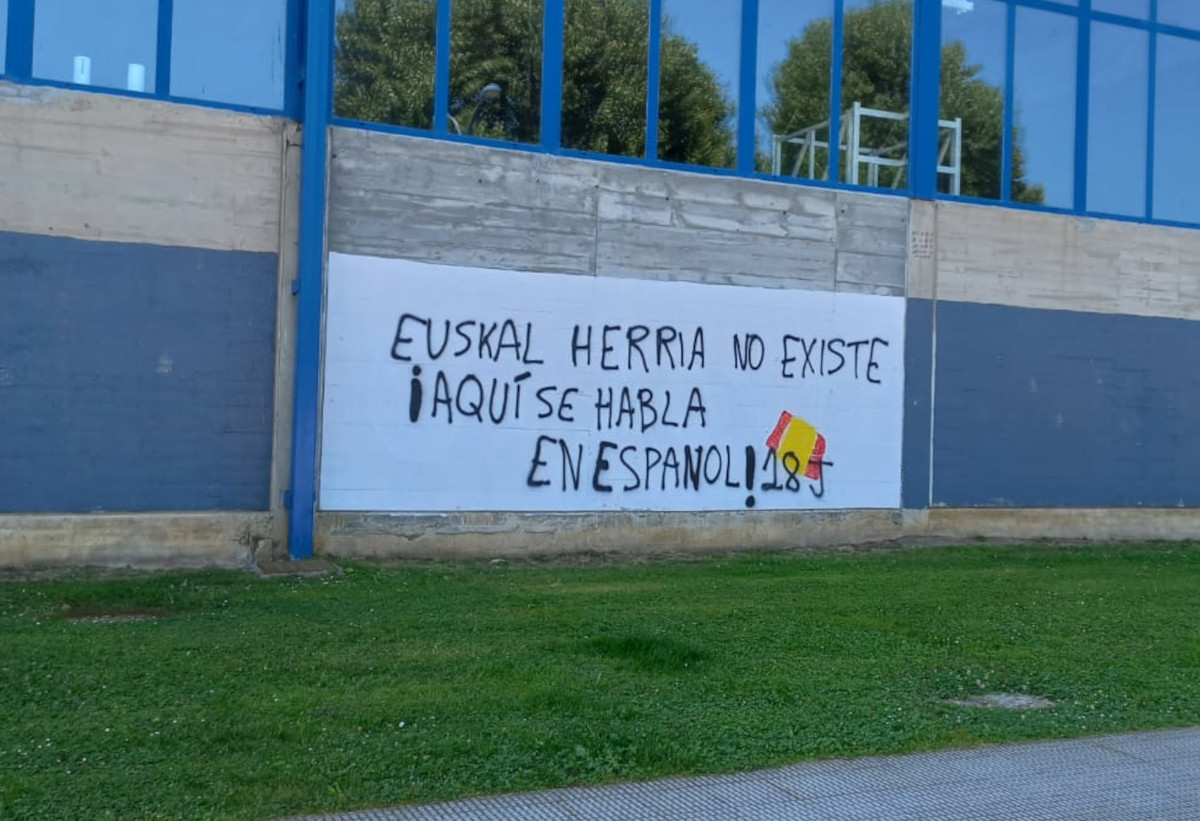 EUSKAL HERRIA NO EXISTE
¡AQUÍ SE HABLA
EN ESPANOL! 18J